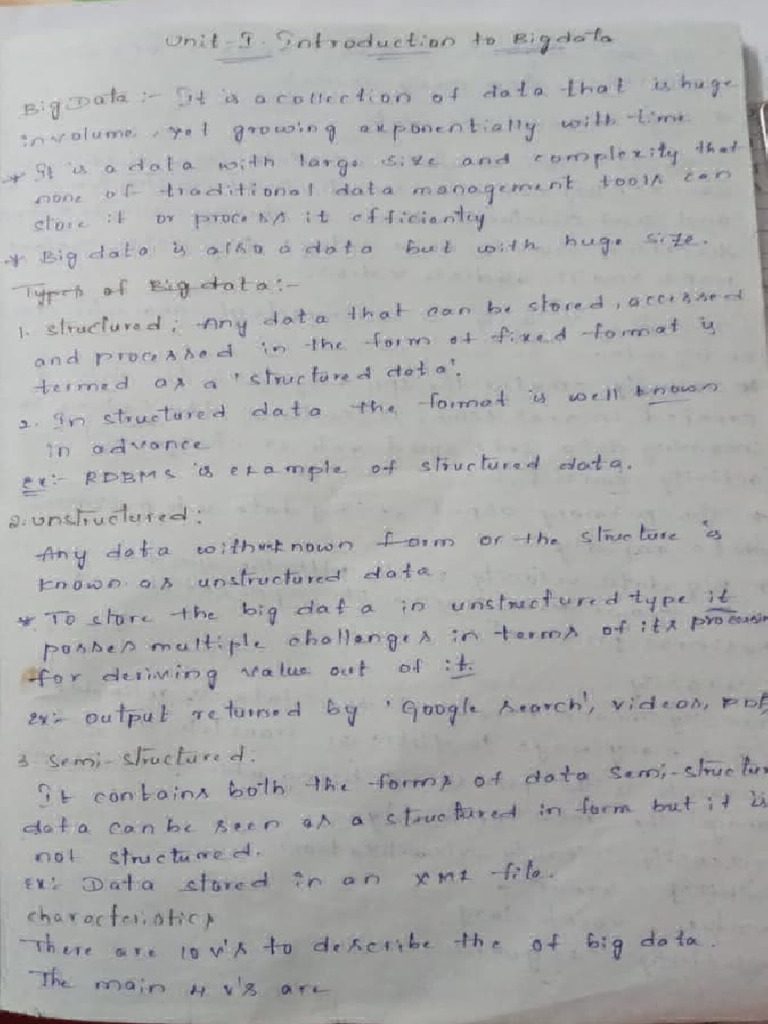 Unit-I. Introduction to Bigdata
Big Data :- It is a collection of data that is huge
in volume, yet growing exponentially with time
* It is a data with large size and complexity that
none of traditional data management tools can
store it or process it efficiently
* Big data is also a data but with huge size.
Types of Big data:-
1. structured: Any data that can be stored, accessed
and processed in the form of fixed-format is
termed as a 'structured data'.
2. In structured data the format is well known
in advance
ex:- RDBMS is example of structured data.
2. unstructured:
Any data with unknown form or the structure is
known as unstructured data.
* To store the big data in unstructured type it
posses multiple challenges in terms of its processin
for deriving value out of it.
ex:- output returned by 'Google search', videos, PDF
3 semi-structured:
It contains both the forms of data semi-structur
data can be seen as a structured in form but it is
not structured.
Ex: Data stored in an XML file.
characteristics
There are 10 v's to describe the of big data.
The main 4 v's are